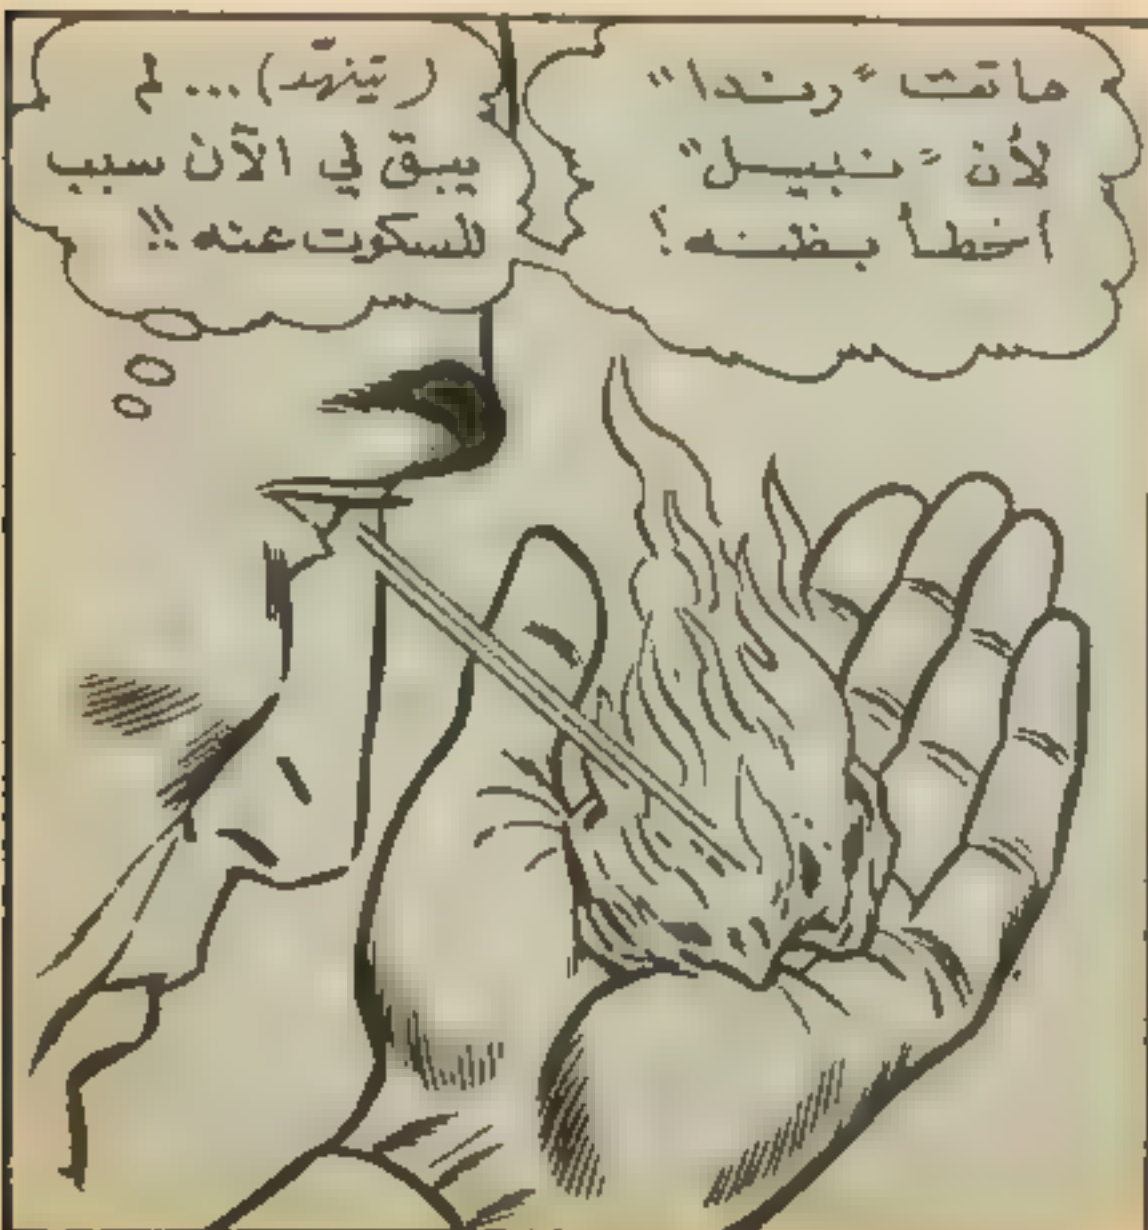 ماتت "رندا"
لأن "نبيل"
اخطأ بظنه!
(تنهّد)... لم
يبق لي الآن سبب
للسكوت عنه!!